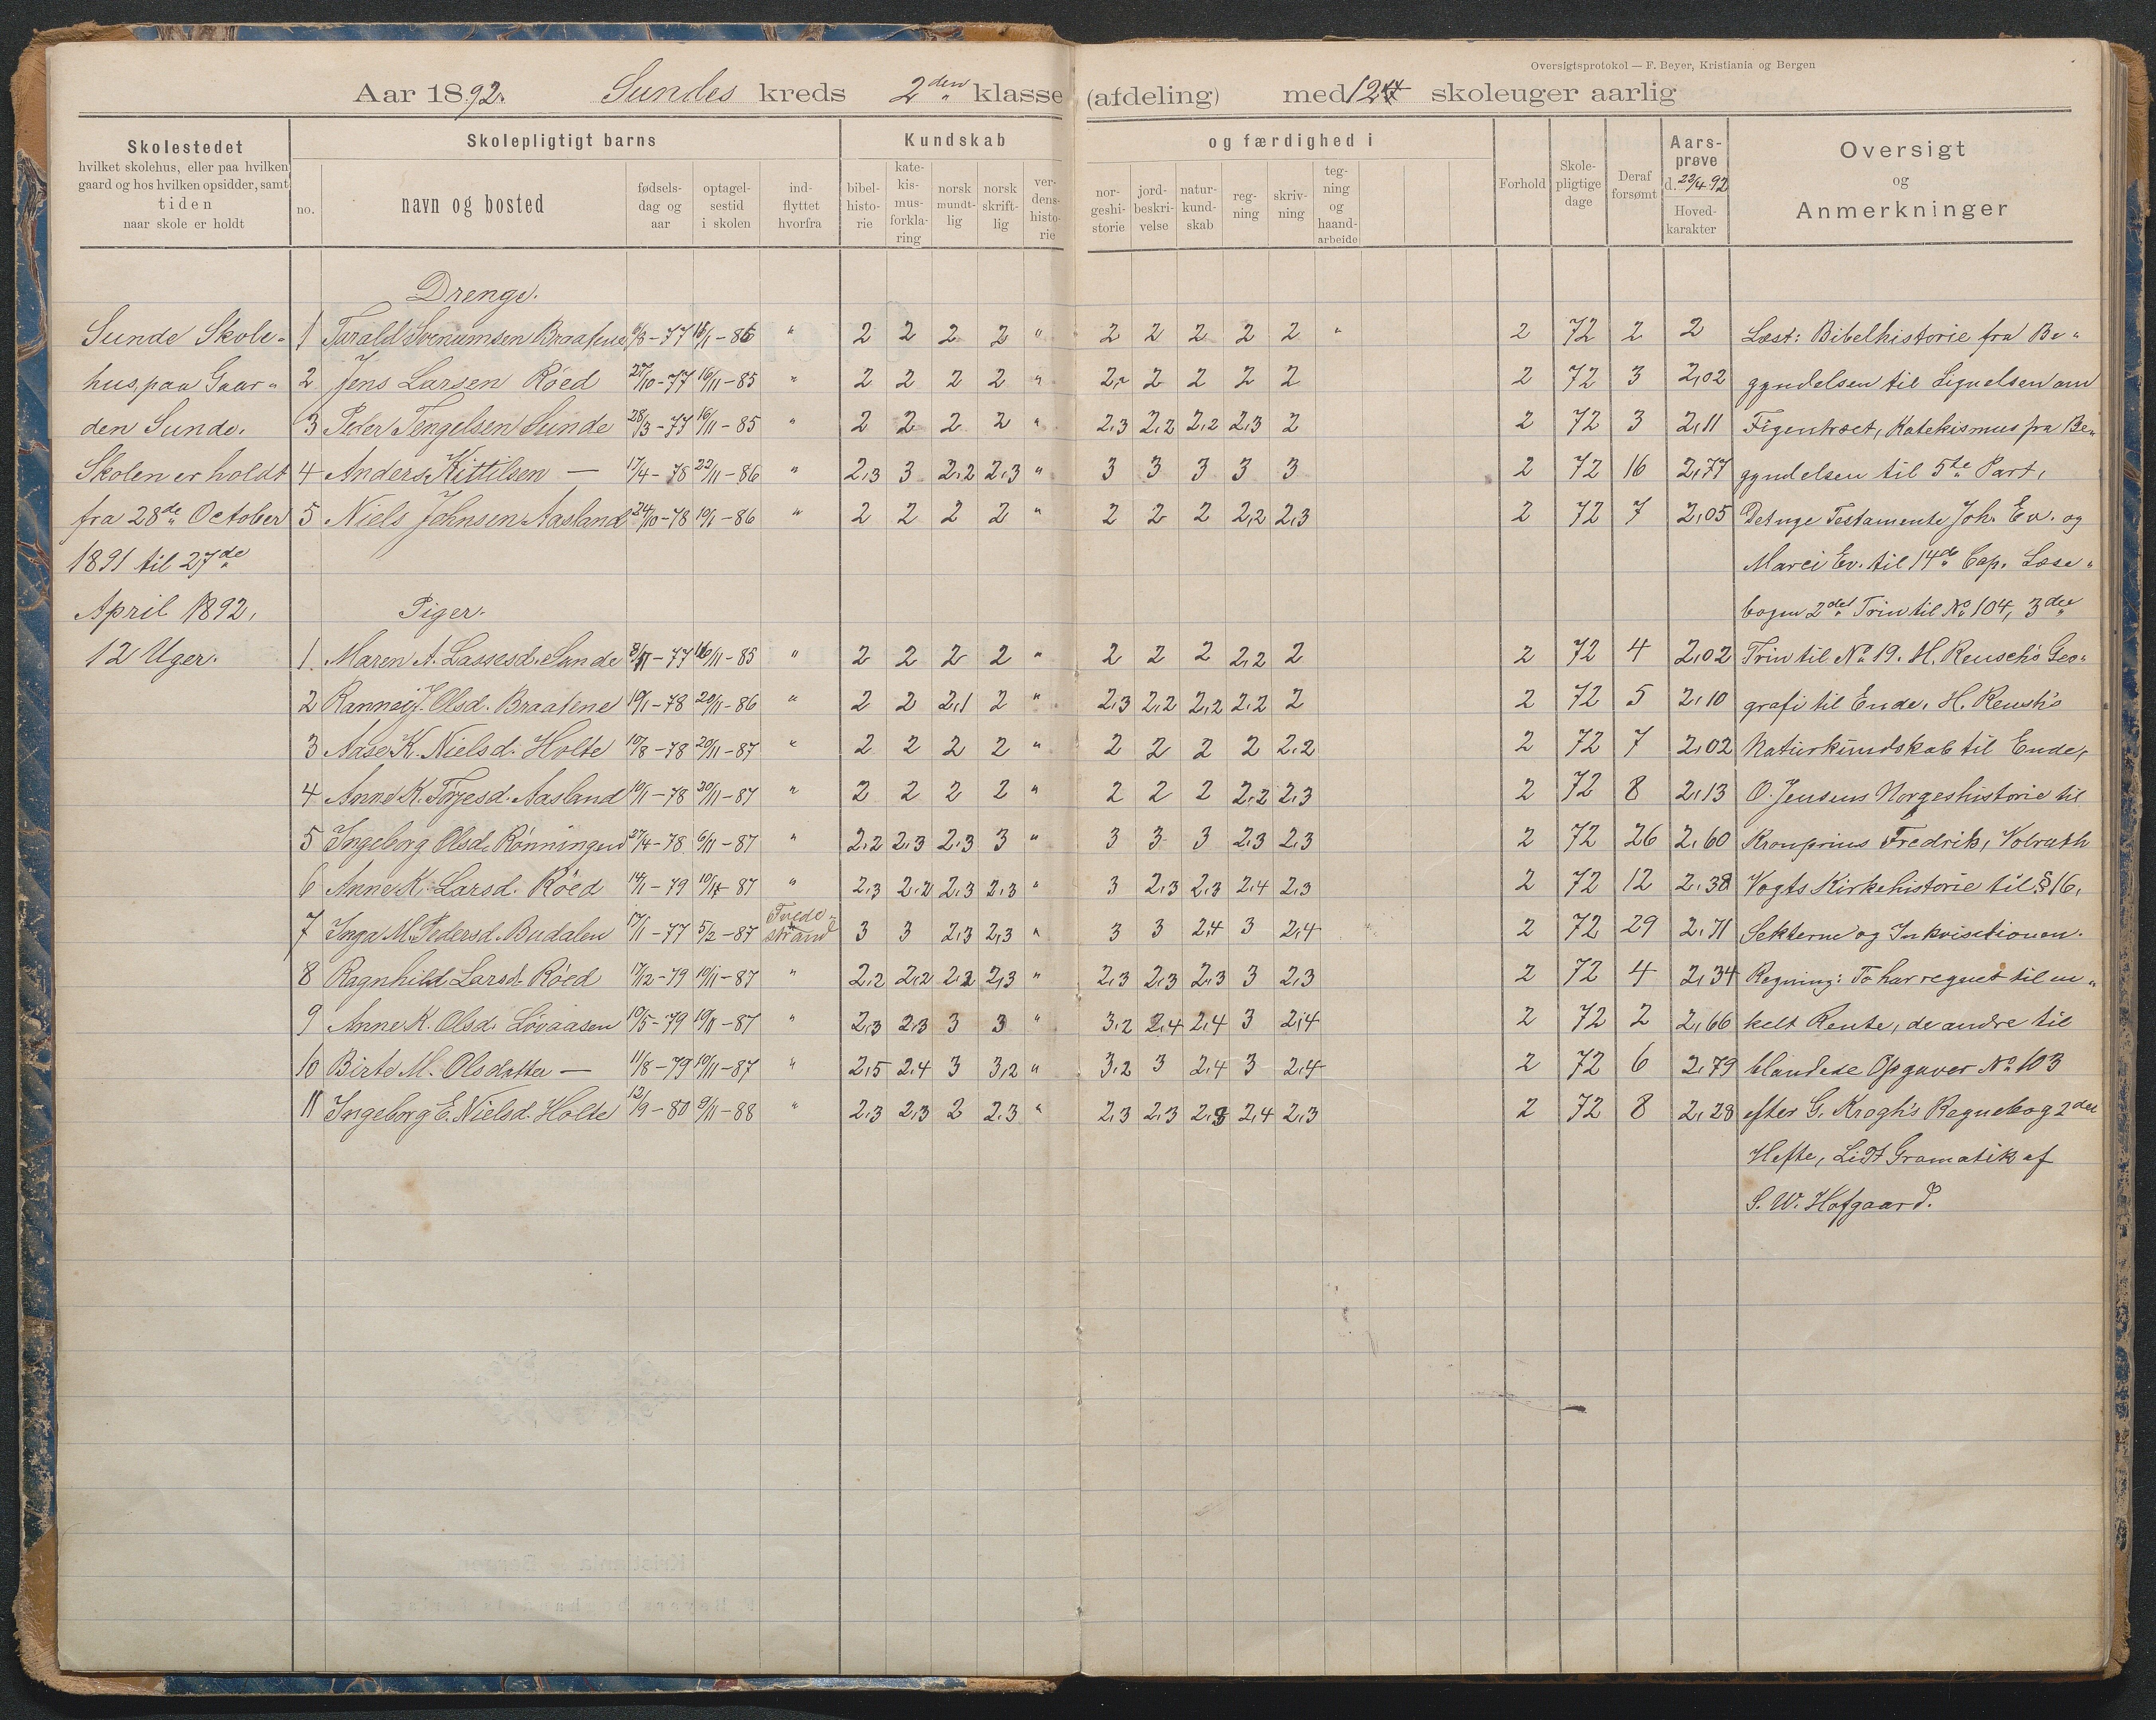 Oversigtsprotokol — F. Beyer, Kristiania og Bergen
Aar 1892. Sundes kreds 2den klasse (afdeling) med 12 skoleuger aarlig
Skolestedet
hvilket skolehus, eller paa hvilken
gaard og hos hvilken opsidder, samt
tiden
naar skole er holdt
Skolepligtigt barns
no.
navn og bosted
fødsels-
dag og
aar
optagel-
sestid
i skolen
ind-
flyttet
hvorfra
Kundskab
bibel-
histo-
rie
kate-
kis-
mus-
forkla-
ring
norsk
mundt-
lig
norsk
skrift-
lig
ver-
dens-
histo-
rie
og færdighed i
nor-
geshi-
storie
jord-
beskri-
velse
natur-
kund-
skab
reg-
ning
skriv-
ning
teg-
ning
og
haand-
arbeide
Forhold
Skole-
pligtige
dage
Deraf
forsømt
Aars-
prøve
d. 22/4 92
Hoved-
karakter
Oversigt
og
Anmerkninger
Sunde Skole-
hus, paa Gaar-
den Sunde.
Skolen er holdt
fra 28de October
1891 til 27de
April 1892,
12 Uger.
Drenge.
1 Tarald Braatene 6/3-77 " 2 2 2 2 " 2 2 2 2 2 " 2 72 2 2
2 Jens Larsen Röed 27/10-77 16/11-85 " 2 2 2 2 " 2 2 2 2 2 2 72 3 2,02
3 Peder Tengelsen Sunde 28/3-77 16/11-85 " 2 2 2 2 " 2,3 2,2 2,2 2,3 2 2 72 3 2,11
4 Anders Kittilsen — 17/4-78 22/11-86 " 2,3 3 2,2 2,3 " 3 3 3 3 3 2 72 16 2,77
5 Niels Johnsen Aasland 24/10-78 19/1-86 " 2 2 2 2 " 2 2 2 2,2 2,3 2 72 7 2,05
Piger.
1 Maren A. Lassesd. Sunde 8/11-77 16/11-85 " 2 2 2 2 " 2 2 2 2,2 2 2 72 4 2,02
2 Rannei J. Olsd. Braatene 19/1-78 20/11-86 " 2 2 2,1 2 " 2,3 2,2 2,2 2,2 2 2 72 5 2,10
3 Aase K. Nielsd. Holte 10/8-78 20/11-87 " 2 2 2 2 " 2 2 2 2 2,2 2 72 7 2,02
4 Anne K. Torjesd. Aasland 10/1-78 20/11-87 " 2 2 2 2 " 2 2 2 2,2 2,3 2 72 8 2,13
5 Ingeborg Olsd. Rönningen 27/4-78 6/11-87 " 2,2 2,3 2,3 3 " 3 3 3 2,3 2,3 2 72 26 2,60
6 Anne K. Larsd. Röed 14/1-79 10/11-87 " 2,3 2,2 2,3 2,3 " 3 2,3 2,3 2,4 2,3 2 72 12 2,38
7 Inga M. Pedersd. Budalen 17/1-77 5/2-87 Tvede-
strand 3 3 2,3 2,3 " 3 3 2,4 3 2,4 2 72 29 2,71
8 Ragnhild Larsd. Röed 17/12-79 10/11-87 " 2,2 2,2 2,2 2,3 " 2,3 2,3 2,3 3 2,3 2 72 4 2,34
9 Anne K. Olsd. Lövaasen 10/5-79 10/11-87 " 2,3 2,3 3 3 " 3,2 2,4 2,4 3 2,4 2 72 2 2,66
10 Birte M. Olsdatter — 11/8-79 10/11-87 " 2,5 2,4 3 3,2 " 3,2 3 2,4 3 2,4 2 72 6 2,79
11 Ingeborg E. Nielsd. Holte 12/9-80 9/11-88 " 2,3 2,3 2 2,3 " 2,3 2,3 2,3 2,4 2,3 2 72 8 2,28
Læst: Bibelhistorie fra Be-
gyndelsen til Lignelsen om
Figentræet, Katekismus fra Be-
gyndelsen til 5te Part,
Det nye Testamente Joh. Ev. og
Marci Ev. til 14de Cap. Læse-
bogen 2det Trin til No 104, 3die
Trin til No 19. H. Reusch's Geo-
grafi til Ende, H. Reush's
Naturkundskab til Ende,
O. Jensens Norgeshistorie til
Kronprins Fredrik, Volrath
Vogts Kirkehistorie til § 16,
Sekterne og Inkvisitionen.
Regning: To har regnet til en-
kelt Rente, de andre til
blandede Opgaver No 103
efter G. Krogh's Regnebog 2det
Hefte, Lidt Gramatik af
S. W. Hofgaard.